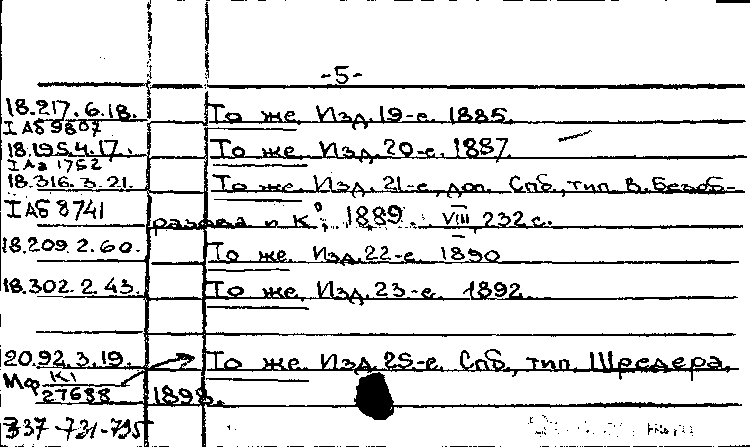 -5-
18.217.6.18. То же. Изд. 19-е. 1885.
I Аб 9807
18.195.4.17. То же. Изд. 20-е. 1887.
I Аа 1752
18.316.3.21. То же. Изд. 21-е, доп. Спб., тип. В. Безоб-
I Аб 8741 разова и К°, 1889. VIII, 232 с.
18.209.2.60. То же. Изд. 22-е. 1890
18.302.2.43. То же. Изд. 23-е. 1892.
20.92.3.19. То же. Изд. 25-е. Спб., тип. Шредера,
Мф К1/27688 1898.
337-731-795